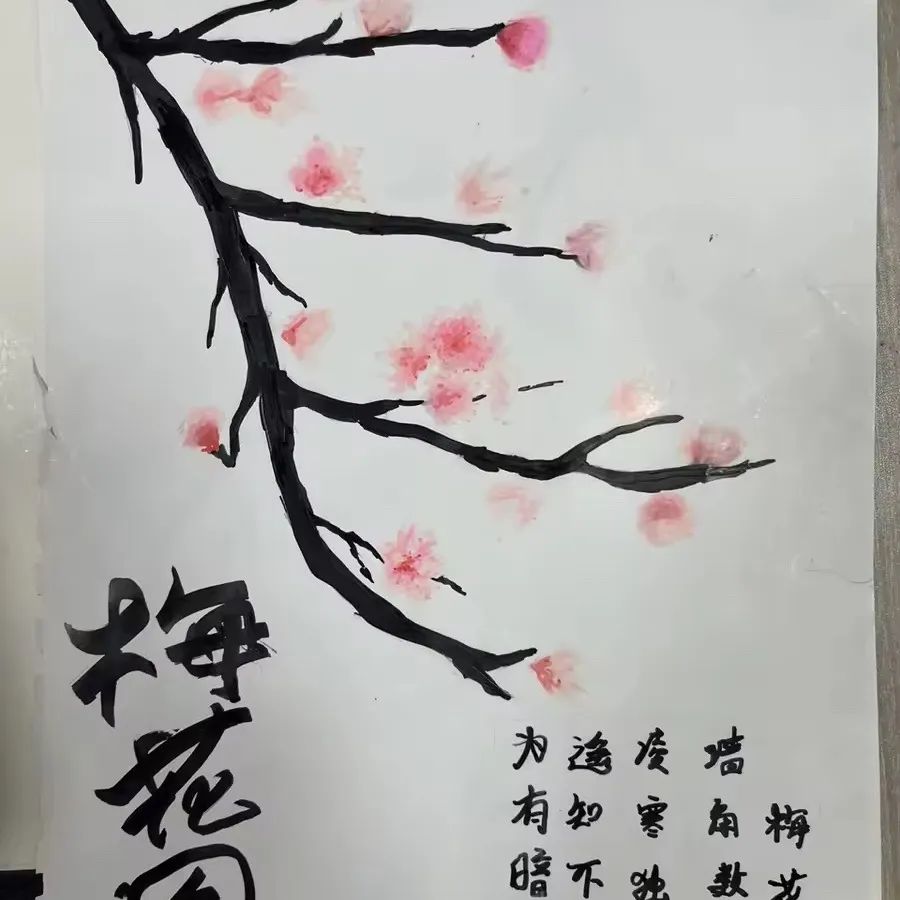 梅花
墙角数
凌寒独
遥知不
为有暗
梅花图